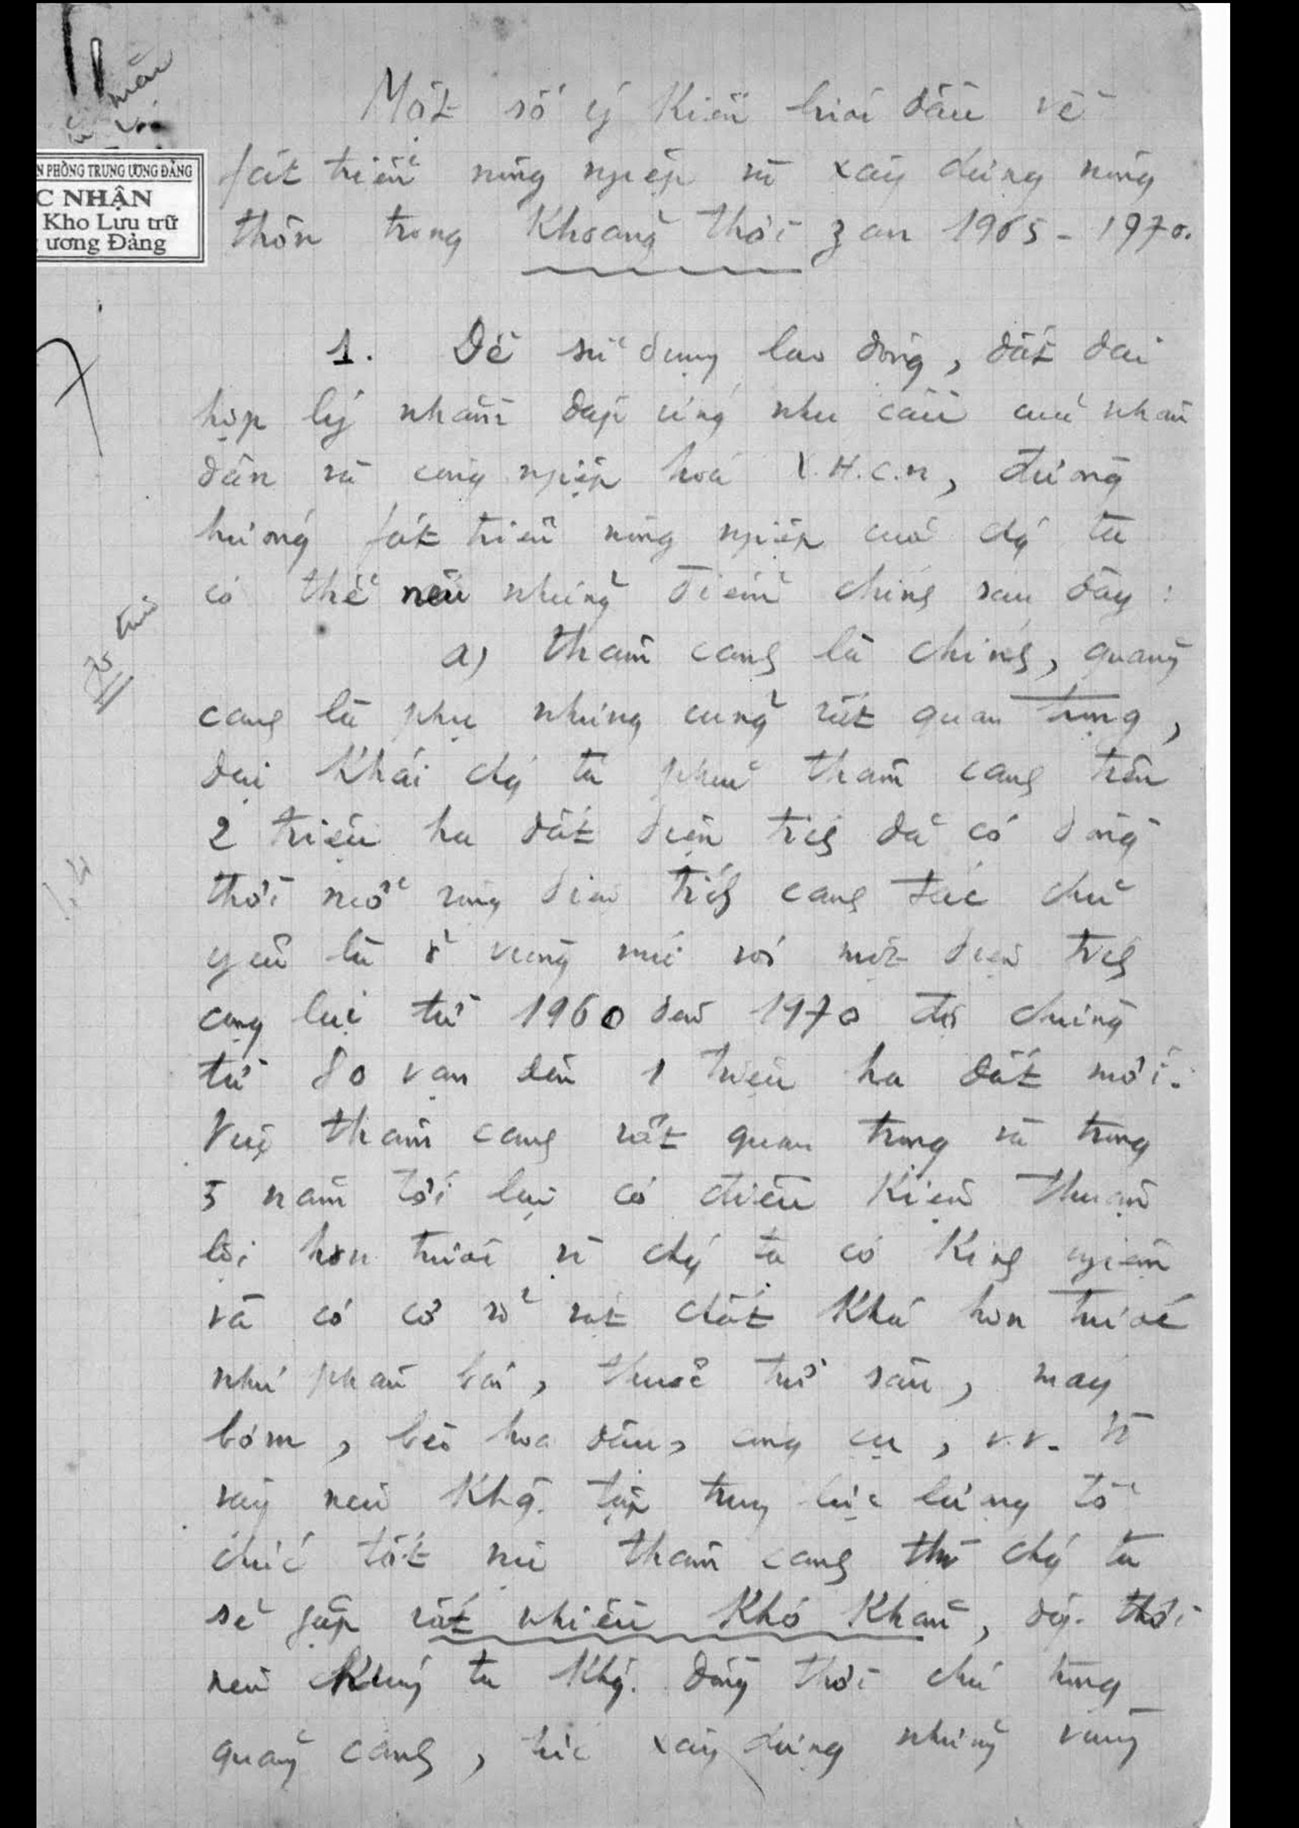 Một số ý kiến bước đầu về
fát triển nông ngiệp và xây dựng nông
thôn trong khoảng thời zan 1965 - 1970.
N PHÒNG TRUNG ƯƠNG ĐẢNG
C NHẬN
Kho Lưu trữ
ương Đảng
1. Để sử dụng lao động, đất đai
hợp lý nhằm đáp ứng nhu cầu của nhân
dân và công ngiệp hoá X.H.C.N, đường
hướng fát triển nông ngiệp của chý ta
có thể nêu những điểm chính sau đây :
a) thâm cang là chính, quảng
cang là phụ nhưng cũng rất quan trọng,
đại khái chý ta phải thâm cang trên
2 triệu ha đất diện tích đã có đồng
thời mở rộng diện tích cang tác chủ
yếu là ở vùng núi với một diện tích
cộng lại từ 1960 đến 1970 độ chừng
từ 80 vạn đến 1 triệu ha đất mới.
Việc thâm cang rất quan trọng và trong
5 năm tới lại có điều kiện thuận
lợi hơn trước vì chý ta có king ngiệm
và có cơ sở vật chất khá hơn trước
như phân bón, thuốc trừ sâu, máy
bơm, bèo hoa dâu, công cụ, v.v. Vì
vậy nếu khg. tập trung lực lượng tổ
chức tốt việc thâm cang thì chý ta
sẽ gặp rất nhiều khó khăn, đồg. thời
nếu chúng ta khg. đồng thời chú trọng
quảng cang, tức xây dựng những vùng